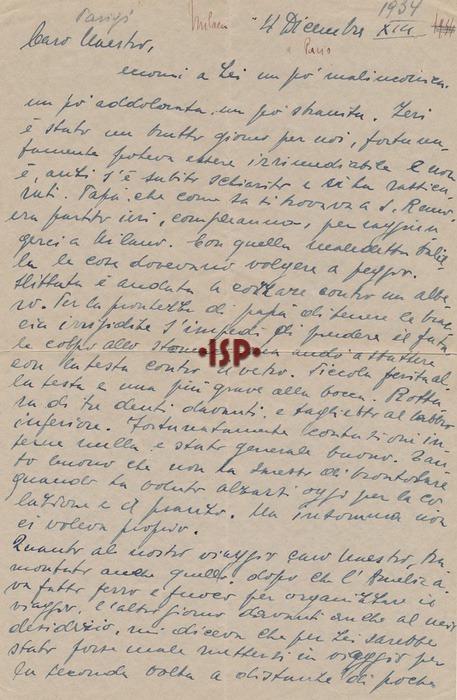 Parigi Milan 4 Dicembre XIII 1934
a Paris
Caro Maestro,
eccomi a Lei un po' malinconica.
un po' addolorata, un po' stranita. Ieri
è stato un brutto giorno per noi, fortuna-
tamente poteva essere irrimediabile e non
è, anzi s'è subito schiarito e ci ha rassicu-
rati. Papà, che come sa si trovava a S. Remo,
era partito ieri, compleanno, per raggiun
gerci a Milano. Con quella maledetta Balil-
la le cose dovevano volgere a peggio.
Slittata è andata a cozzare contro un albe-
ro. Per la prontezza di papà di tenere le brac-
cia irrigidite s'impedì di prendere il fata
le colpo allo stomaco andò a sbattere
con la testa contro il vetro. Piccola ferita al
la testa e una più grave alla bocca. Rottu
ra di tre denti davanti e taglietto al labbro
inferiore. Fortunatamente contusioni in-
terne nulla e stato generale buono. Tan-
to buono che non ha smesso di brontolare
quando ha voluto alzarsi oggi per la co
lazione e il pranzo. Ma insomma non
ci voleva proprio.
Quanto al nostro viaggio caro Maestro,
montato anche quello. dopo che l'Amelia a-
va fatto ferro e fuoco per organizzare il
viaggio, l'altro giorno davanti anche al mio
desiderio, mi diceva che per Lei sarebbe
stato forse male mettersi in viaggio per
la seconda volta a distanza di poche
ISP